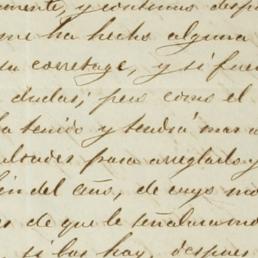 mente, y contamos desp
me ha hecho alguna
su corretage, y si fue
dudas; pero como el
ha tenido y tendrá mas
cultades para arreglarlo y
fin del año, de cuyo mo
es de que le señalara
si las hay, despues